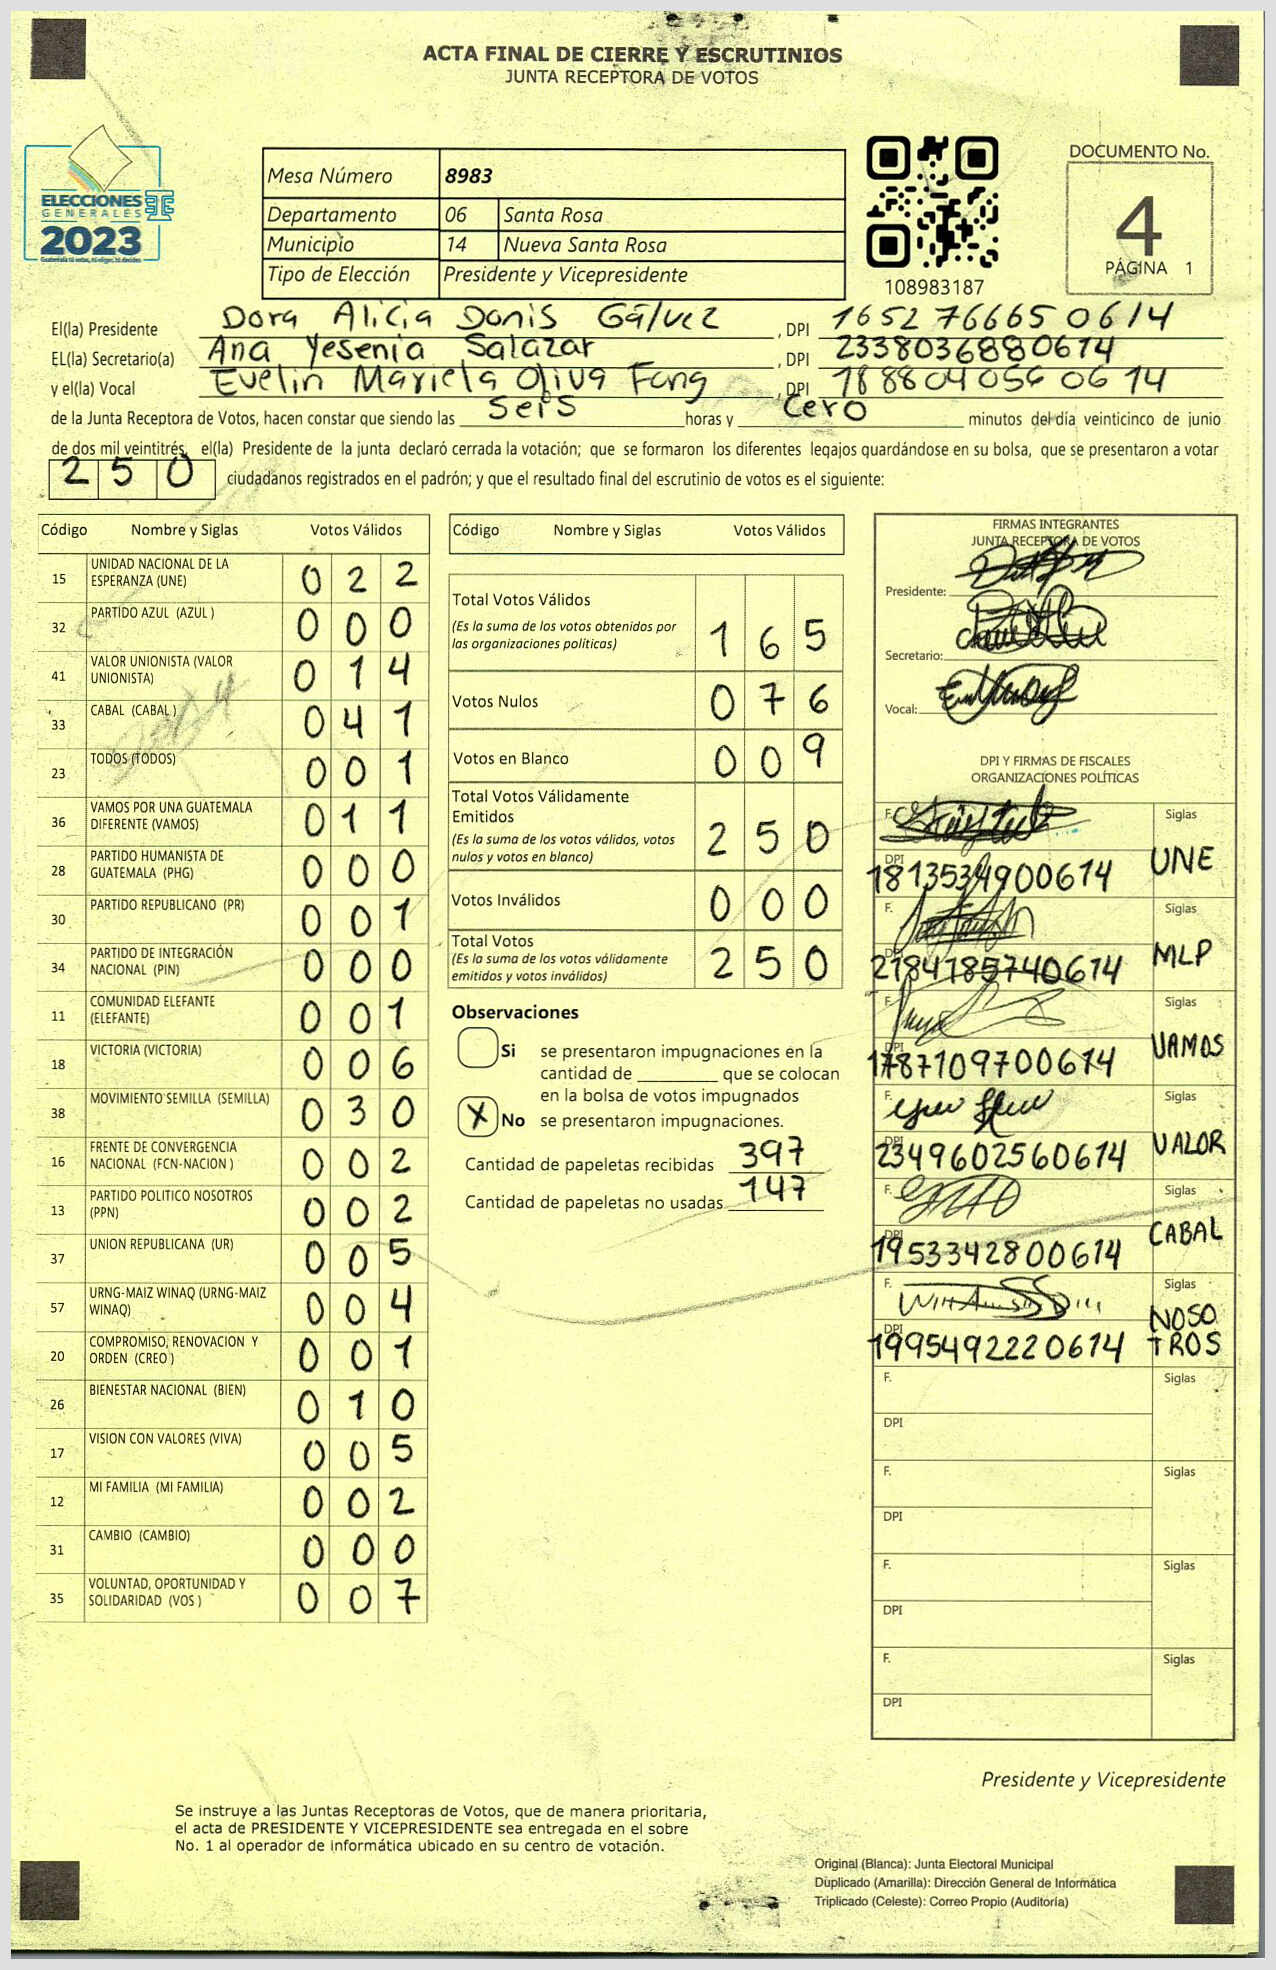 ACTA FINAL DE CIERRE Y ESCRUTINIOS
JUNTA RECEPTORA DE VOTOS
ELECCIONES
GENERALES
2023
Mesa Número 8983
Departamento 06 Santa Rosa
Municipio 14 Nueva Santa Rosa
Tipo de Elección Presidente y Vicepresidente
108983187
DOCUMENTO No.
4
PÁGINA 1
El(la) Presidente Dora Alicia Donis Gálvez, DPI 1652 76665 0614
EL(la) Secretario(a) Ana Yesenia Salazar, DPI 2338036880614
y el(la) Vocal Evelin Mariela Oliva Fong, DPI 1888040560614
de la Junta Receptora de Votos, hacen constar que siendo las seis horas y cero minutos del día veinticinco de junio
de dos mil veintitrés, el(la) Presidente de la junta declaró cerrada la votación; que se formaron los diferentes legajos guardándose en su bolsa, que se presentaron a votar
250 ciudadanos registrados en el padrón; y que el resultado final del escrutinio de votos es el siguiente:
Código Nombre y Siglas Votos Válidos
15 UNIDAD NACIONAL DE LA ESPERANZA (UNE) 022
32 PARTIDO AZUL (AZUL ) 000
41 VALOR UNIONISTA (VALOR UNIONISTA) 014
33 CABAL (CABAL ) 041
23 TODOS (TODOS) 001
36 VAMOS POR UNA GUATEMALA DIFERENTE (VAMOS) 011
28 PARTIDO HUMANISTA DE GUATEMALA (PHG) 000
30 PARTIDO REPUBLICANO (PR) 001
34 PARTIDO DE INTEGRACIÓN NACIONAL (PIN) 000
11 COMUNIDAD ELEFANTE (ELEFANTE) 001
18 VICTORIA (VICTORIA) 006
38 MOVIMIENTO SEMILLA (SEMILLA) 030
16 FRENTE DE CONVERGENCIA NACIONAL (FCN-NACION ) 002
13 PARTIDO POLITICO NOSOTROS (PPN) 002
37 UNION REPUBLICANA (UR) 005
57 URNG-MAIZ WINAQ (URNG-MAIZ WINAQ) 004
20 COMPROMISO, RENOVACION Y ORDEN (CREO ) 001
26 BIENESTAR NACIONAL (BIEN) 010
17 VISION CON VALORES (VIVA) 005
12 MI FAMILIA (MI FAMILIA) 002
31 CAMBIO (CAMBIO) 000
35 VOLUNTAD, OPORTUNIDAD Y SOLIDARIDAD (VOS ) 007
Código Nombre y Siglas Votos Válidos
Total Votos Válidos 165
(Es la suma de los votos obtenidos por
las organizaciones políticas)
Votos Nulos 076
Votos en Blanco 009
Total Votos Válidamente
Emitidos 250
(Es la suma de los votos válidos, votos
nulos y votos en blanco)
Votos Inválidos 000
Total Votos 250
(Es la suma de los votos válidamente
emitidos y votos inválidos)
Observaciones
Si se presentaron impugnaciones en la
cantidad de ________ que se colocan
en la bolsa de votos impugnados
X No se presentaron impugnaciones.
Cantidad de papeletas recibidas 397
Cantidad de papeletas no usadas 147
FIRMAS INTEGRANTES
JUNTA RECEPTORA DE VOTOS
Presidente:
Secretario:
Vocal:
DPI Y FIRMAS DE FISCALES
ORGANIZACIONES POLÍTICAS
F. Siglas
DPI 1813534900614 UNE
F. Siglas
DPI 2184185740614 MLP
F. Siglas
DPI 1787109700614 VAMOS
F. Siglas
DPI 2349602560614 VALOR
F. Siglas
DPI 1953342800614 CABAL
F. Siglas
DPI 1995492220614 NOSOTROS
F. Siglas
DPI
F. Siglas
DPI
F. Siglas
DPI
F. Siglas
DPI
Presidente y Vicepresidente
Se instruye a las Juntas Receptoras de Votos, que de manera prioritaria,
el acta de PRESIDENTE Y VICEPRESIDENTE sea entregada en el sobre
No. 1 al operador de informática ubicado en su centro de votación.
Original (Blanca): Junta Electoral Municipal
Duplicado (Amarilla): Dirección General de Informática
Triplicado (Celeste): Correo Propio (Auditoría)